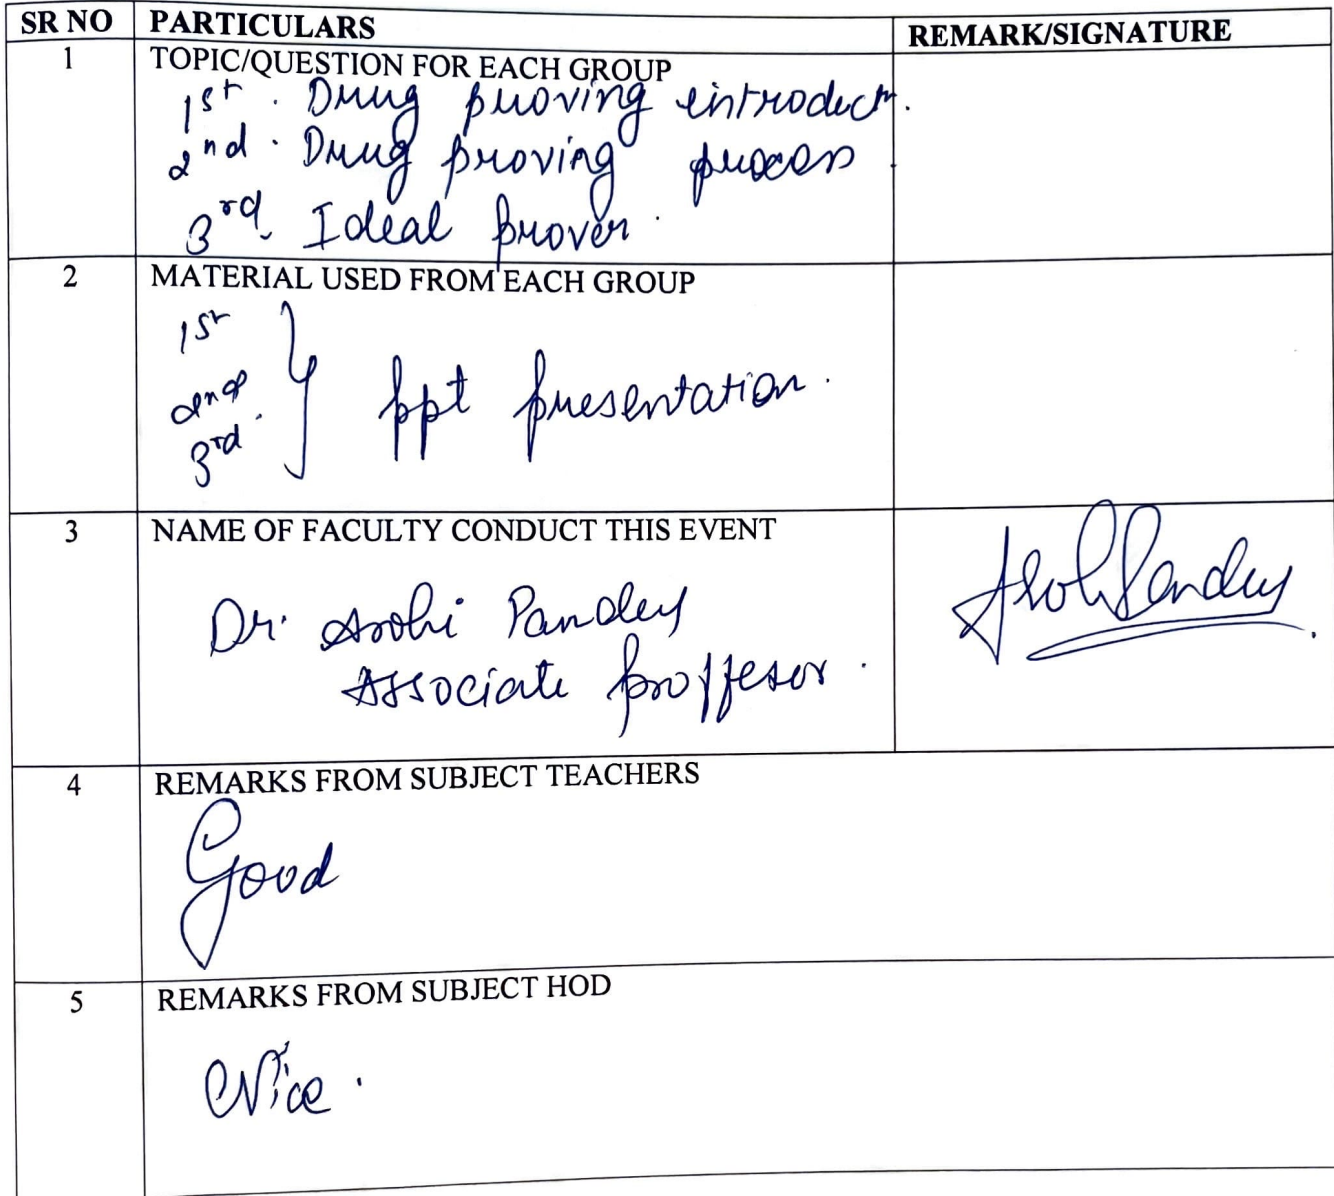 SR NO PARTICULARS REMARK/SIGNATURE
1 TOPIC/QUESTION FOR EACH GROUP
1st. Drug proving introductn.
2nd. Drug proving process
3rd. Ideal prover.
2 MATERIAL USED FROM EACH GROUP
1st
2nd
3rd. } ppt presentation.
3 NAME OF FACULTY CONDUCT THIS EVENT
Dr. Arohi Pandey
Associate proffesor.
4 REMARKS FROM SUBJECT TEACHERS
Good
5 REMARKS FROM SUBJECT HOD
Nice.